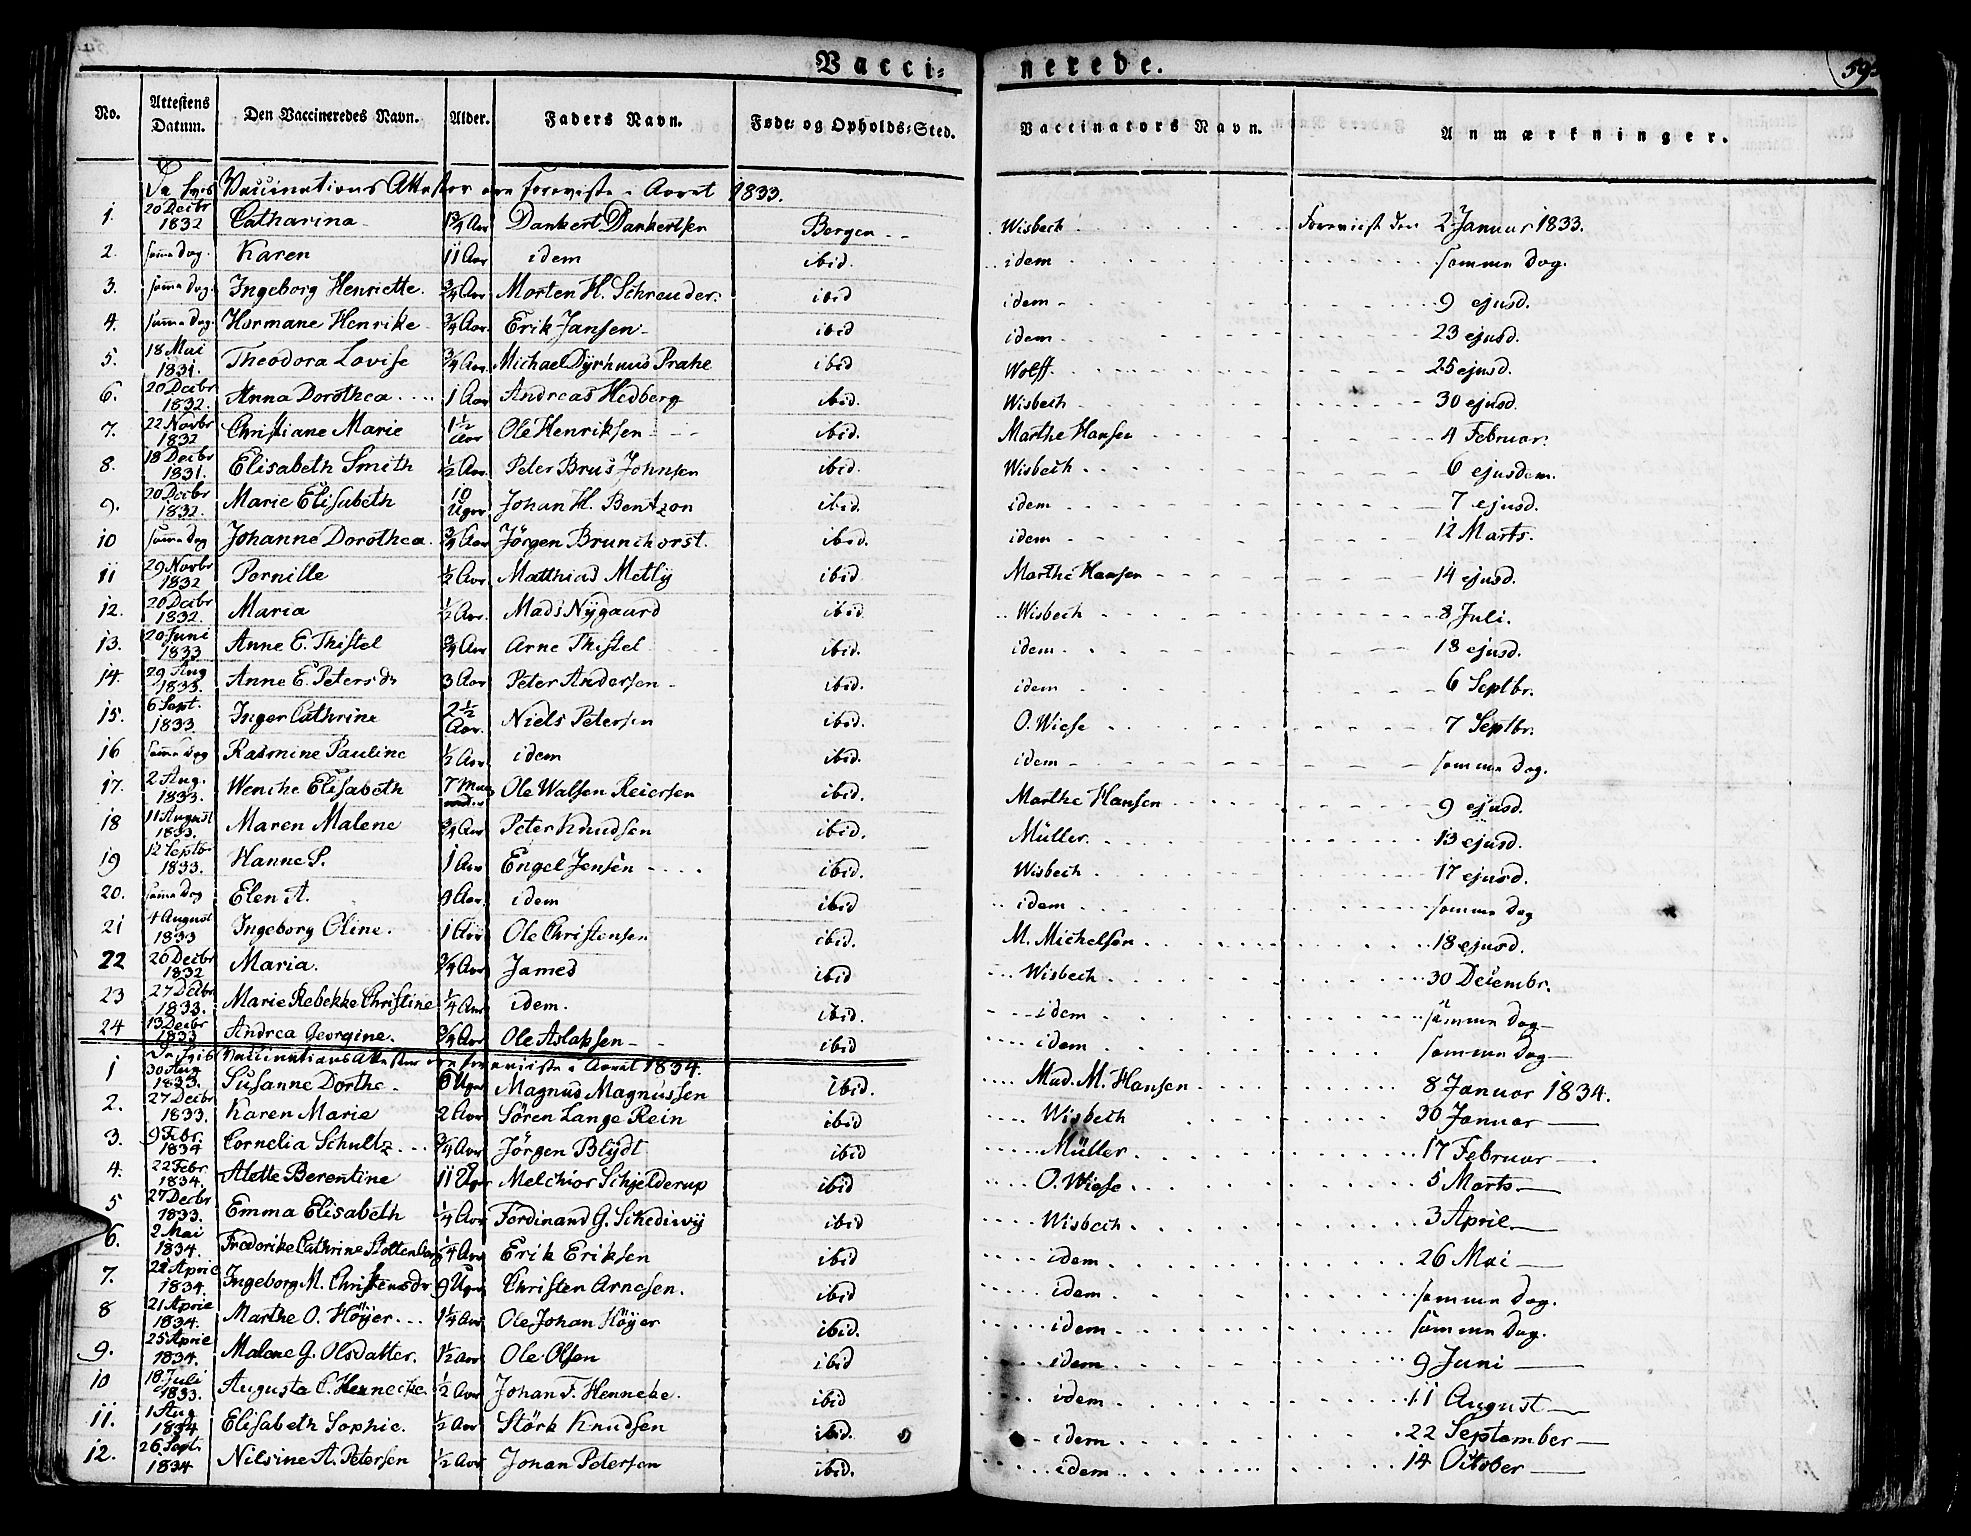 Vacci= nerede. 59
No. Attestens Datum. Den Vaccineredes Navn. Alder. Faders Navn. Føde= og Opholds=Sted. Vaccinators Navn. Anmærkninger.
Vaccinations Attester ere foreviste i Aaret 1833.
1. 20 Decbr 1832 Catharina 1¾ Aar Dankert Dankertsen Bergen Wisbech Foreviist den 2 Januar 1833.
2. samme Dag. Karen 11 Aar idem ibid. idem samme Dag.
3. samme Dag. Ingeborg Henriette. ¾ Aar Morten H. Schreuder. ibid idem 9 ejusd.
4. samme Dag. Hermane Henrike ¾ Aar. Erik Jansen ibid idem 23 ejusd.
5. 18 Mai 1831. Theodora Lovise ¾ Aar. Michael Dyrhuus Prahe ibid Wolff. 25 ejusd.
6. 20 Decbr 1832. Anna Dorothea 1 Aar Andreas Hedberg ibid. Wisbech 30 ejusd.
7. 22 Novbr 1832 Christiane Marie 1½ Aar Ole Henriksen ibid. Marthe Hansen 4 Februar.
8. 18 Decbr 1831. Elisabeth Smith ½ Aar. Peter Brus Johnsen ibid. Wisbech 6 ejusdem.
9. 20 Decbr 1832. Marie Elisabeth 10 Uger Johan H. Bentzon ibid. idem 7 ejusd.
10 samme Dag Johanne Dorothea. ¾ Aar Jörgen Brunchorst. ibid. idem 12 Marts.
11 29 Novbr 1832 Pernille ½ Aar. Matthias Metly ibid Marthe Hansen 14 ejusd.
12. 20 Decbr 1832. Maria ½ Aar. Mads Nygaard ibid Wisbech 8 Juli.
13. 20 Juni 1833 Anne E. Thistel ¾ Aar Arne Thistel ibid. idem 18 ejusd.
14. 29 Aug 1833. Anne E. Petersdr 3 Aar Peter Andersen ibid. idem 6 Septbr.
15. 6 Sept. 1833. Inger Cathrine 2½ Aar. Niels Petersen ibid. O. Wiese 7 Septbr.
16 samme Dag Rasmine Pauline ½ Aar. idem ibid. idem samme Dag.
17. 2 Aug. 1833. Wenche Elisabeth 7 Maaneder Ole Walsen Reiersen ibid. Marthe Hansen 9 ejusd.
18 11 August 1833. Maren Malene ¾ Aar Peter Knudsen ibid. Müller. 13 ejusd.
19 12 Septbr 1833. Hanne P. 1 Aar Engel Jensen ibid. Wisbech 17 ejusd.
20. samme Dag Elen A. 9 Aar. idem ibid idem samme Dag
21 4 August 1833 Ingeborg Oline. 1 Aar Ole Christensen ibid. M. Michelsen 18 ejusd.
22 20 Decbr 1832 Maria. ¾ Aar James ibid Wisbech 30 Decembr.
23 27 Decbr 1833. Marie Rebekke Christine ¼ Aar idem. ibid. idem samme Dag
24 13 Decbr 1833 Andrea Georgine. ¾ Aar Ole Aslaksen ibid idem samme Dag
Vaccinations Attester ere foreviste i Aaret 1834.
1 30 Aug 1833. Susanne Dorthe 6 Uger Magnus Magnussen ibid. Mad. M. Hansen 8 Januar 1834.
2. 27 Decbr 1833. Karen Marie 2 Aar Sören Lange Rein ibid Wisbech 30 Januar
3. 9 Febr. 1834 Cornelia Schultz ¾ Aar Jörgen Blydt ibid Müller 17 Februar
4. 22 Febr. 1834. Alette Berentine 11 Uger Melchior Schjelderup ibid O. Wiese 5 Marts
5 27 Decbr 1833. Emma Elisabeth ¼ Aar Ferdinand G. Schediwy ibid Wisbech 3 April
6. 2 Mai 1834. Frederike Cathrine Stottenberg ¼ Aar Erik Eriksen ibid idem 26 Mai
7. 22 April 1834. Ingeborg M. Christensdr 9 Uger Christen Arnesen. ibid idem samme Dag.
8 21 April 1834. Marthe O. Höyer 1¼ Aar Ole Johan Höyer ibid. idem samme Dag.
9. 25 April 1834. Malene G. Olsdatter. 1½ Aar Ole Olsen ibid idem 9 Juni
10 18 Juli 1833. Augusta C. Hennecke. ½ Aar Johan F. Henneke. ibid idem 11 August
11. 1 Aug 1834 Elisabeth Sophie. ½ Aar Störk Knudsen ibid. idem 22 September
12. 26 Sept. 1834 Nilsine A. Petersen ½ Aar Johan Petersen ibid. idem 14 October